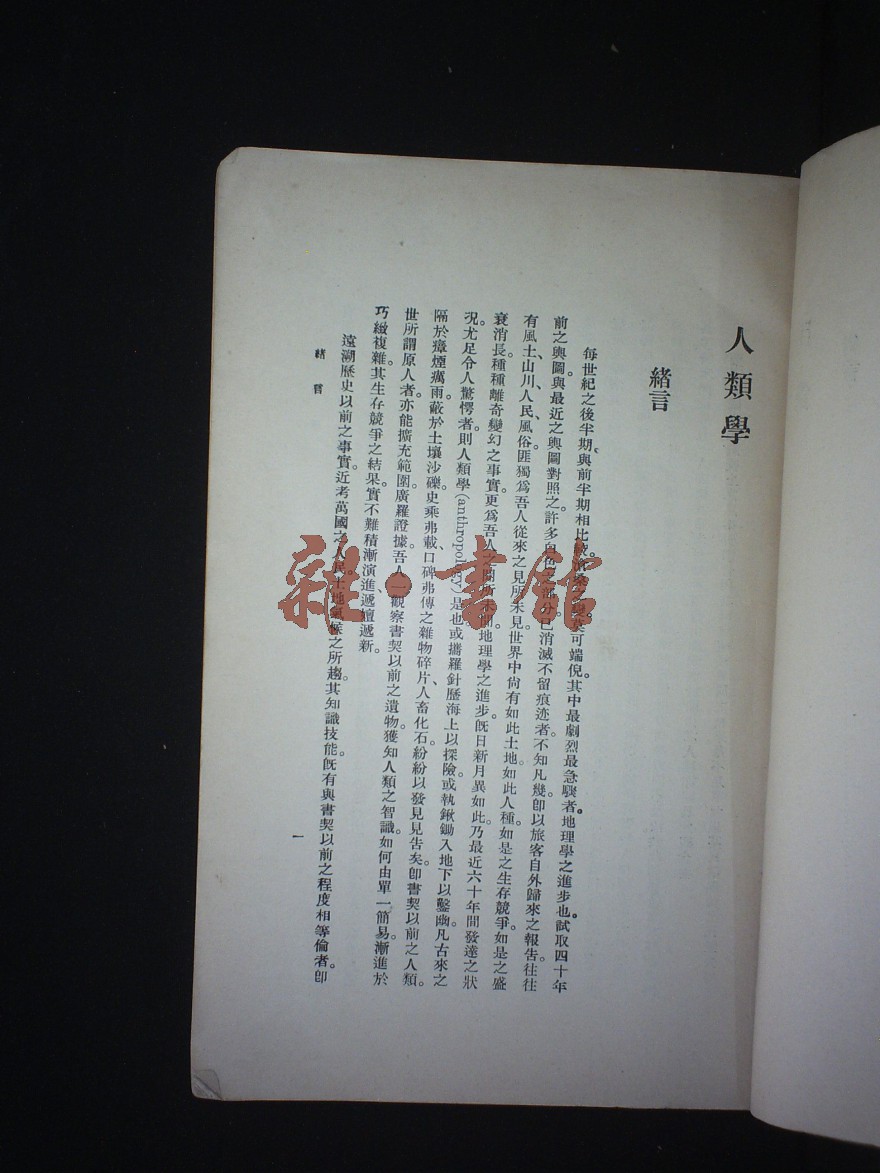 人類學
緒言
每世紀之後半期、與前半期相比較。滄桑之變莫可端倪。其中最劇烈最急驟者。地理學之進步也。試取四十年
前之輿圖。與最近之輿圖對照之。許多白色之部分。已消滅不留痕迹者。不知凡幾。卽以旅客自外歸來之報吿。往往
有風土、山川、人民、風俗。匪獨爲吾人從來之見所未見。世界中尙有如此土地。如此人種。如是之生存競爭。如是之盛
衰消長。種種離奇變幻之事實。更爲吾人之聞所未聞。地理學之進步。旣日新月異如此。乃最近六十年間發達之狀
況。尤足令人驚愕者。則人類學(anthropology)是也。或攜羅針歷海上以探險。或執鍬鋤入地下以鑿幽。凡古來之
隔於瘴煙癘雨、蔽於土壤沙礫。史乘弗載、口碑弗傳之雜物碎片、人畜化石。紛紛以發見見吿矣。卽書契以前之人類。
世所謂原人者。亦能擴充範圍。廣羅證據。吾人一觀察書契以前之遺物。獲知人類之智識。如何由單一簡易。漸進於
巧緻複雜。其生存競爭之結果。實不難積漸演進、遞嬗遞新。
遠溯歷史以前之事實。近考萬國之人民土地氣候之所趨。其知識技能。旣有與書契以前之程度相等倫者。卽
緒言
一
雜·書館